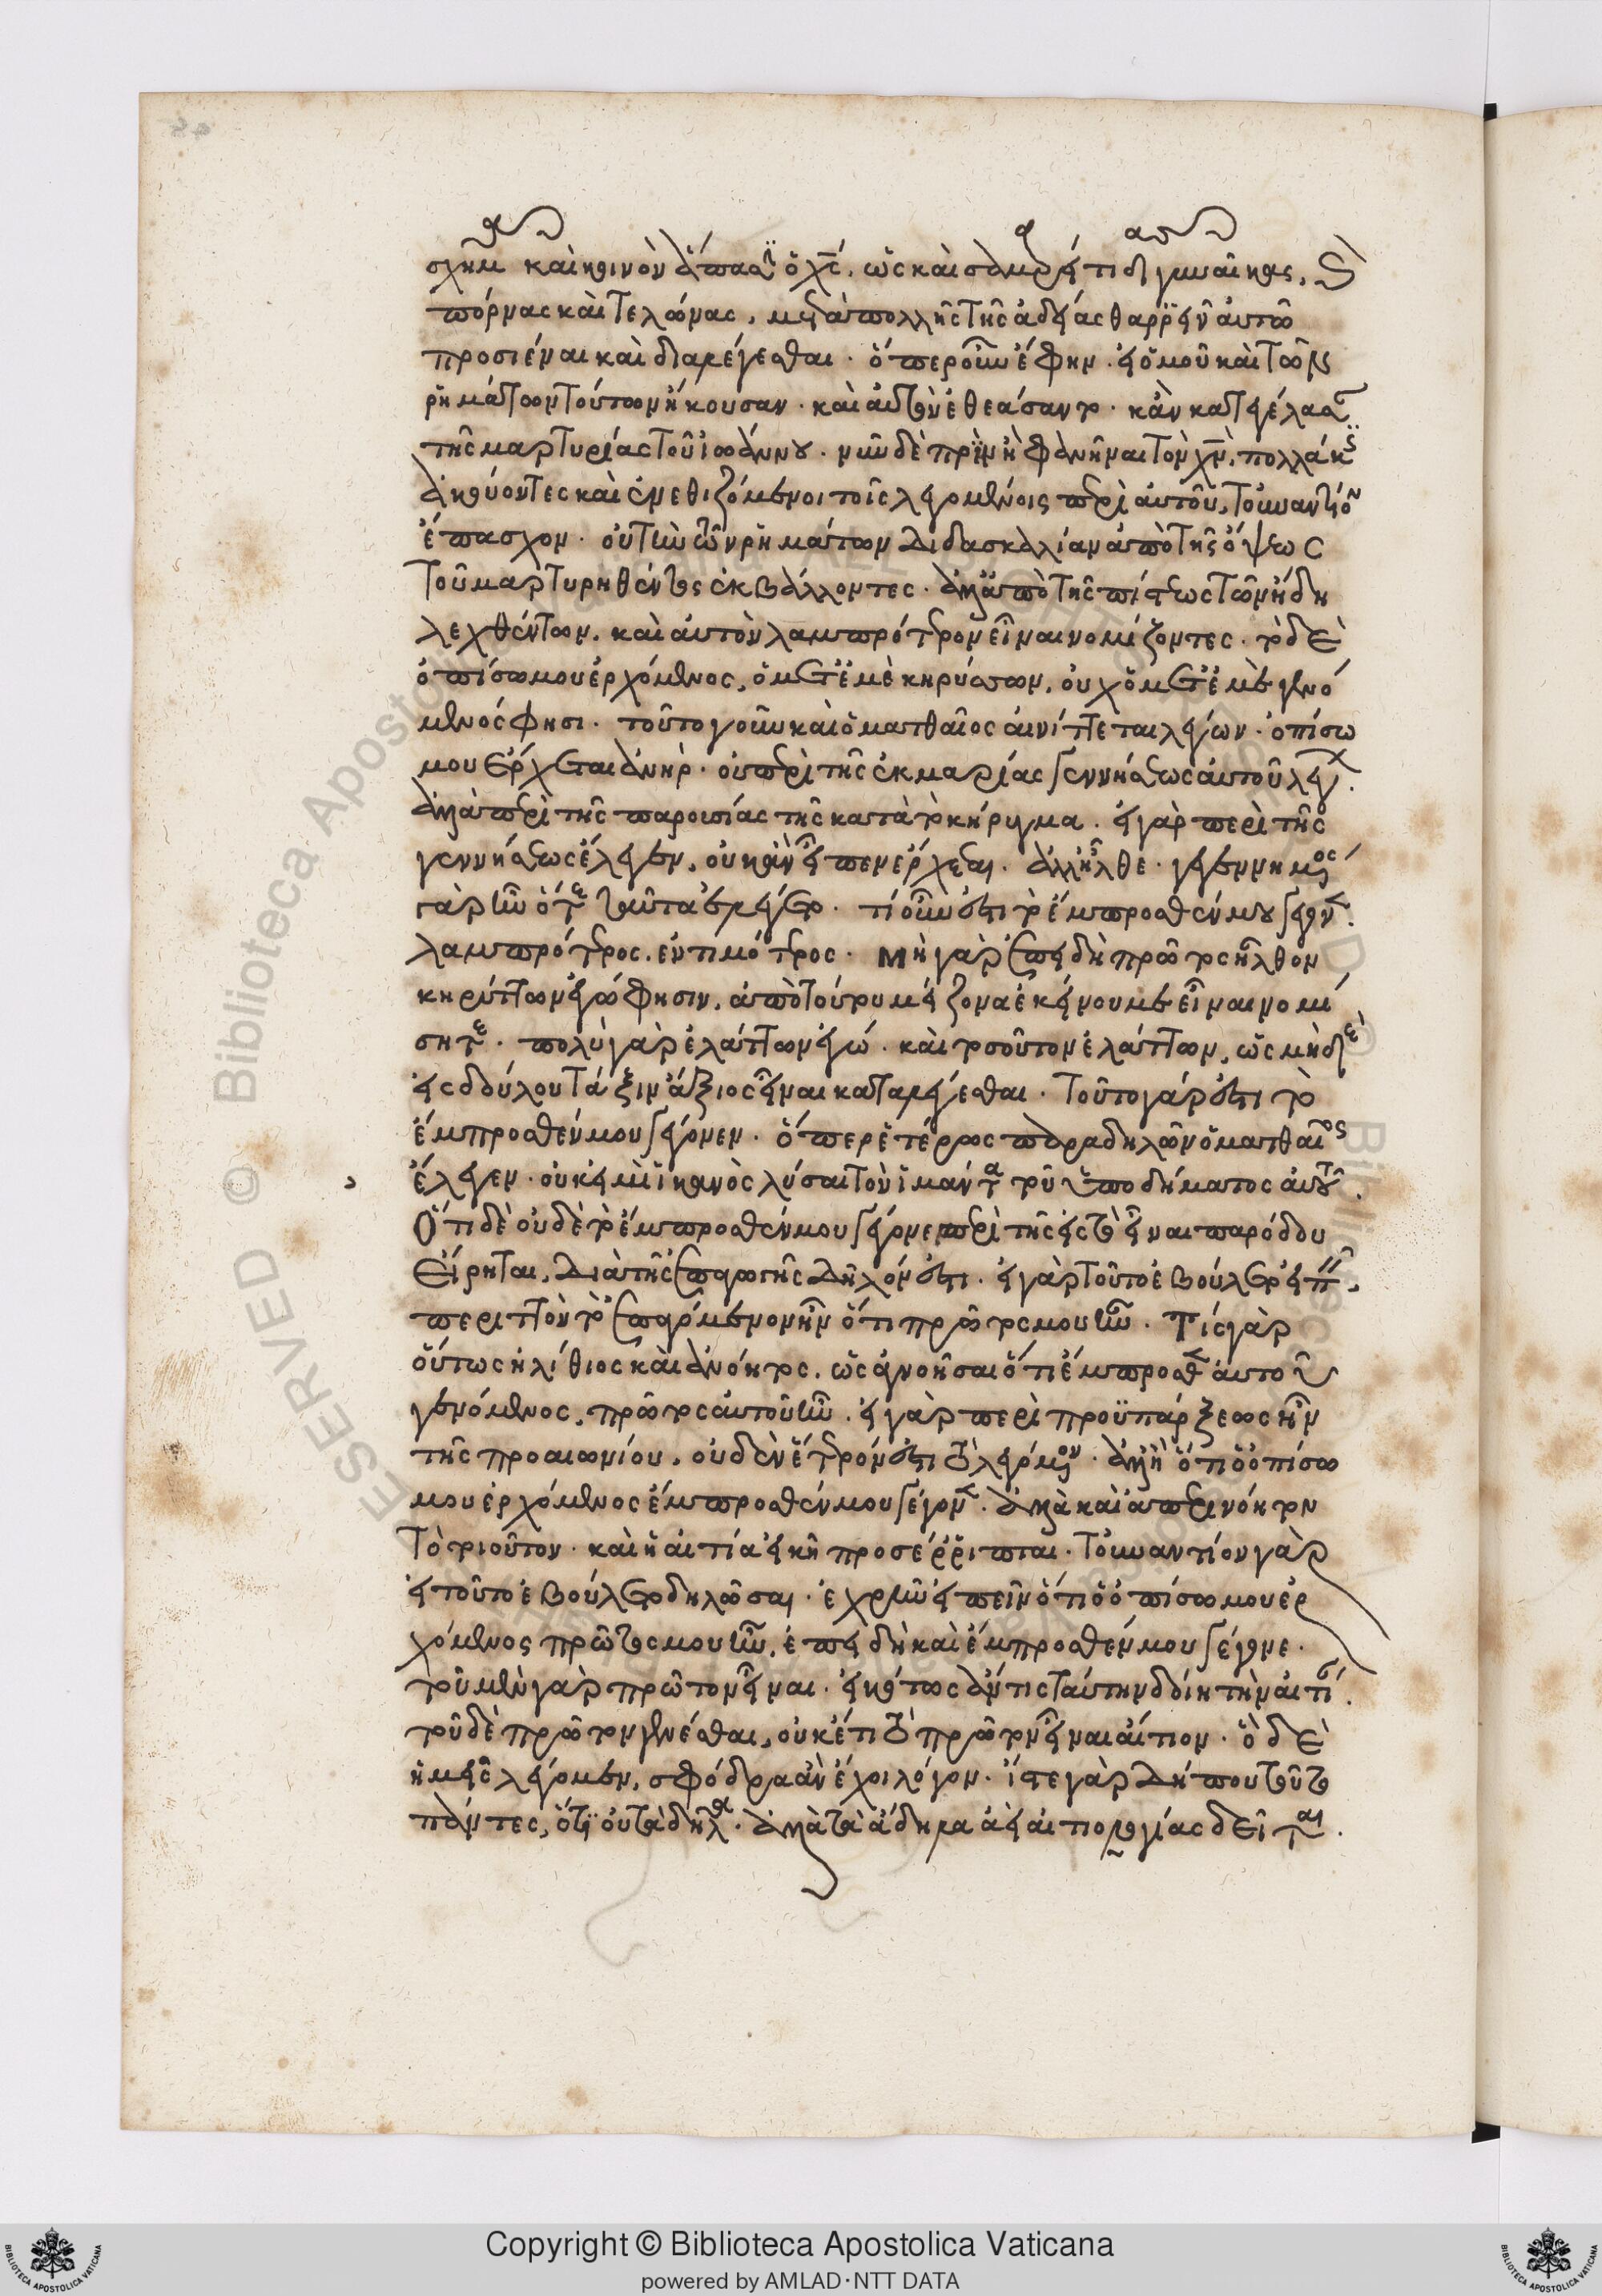 σχῆμα καὶ κοινὸν ἅπασιν ὁ χς, ὡς καὶ σαμαρείτιδας γυναῖκας, καὶ
πόρνας καὶ τελώνας, μετὰ πολλῆς τῆς ἀδείας θαρρεῖν αὐτῶ
προσιέναι καὶ διαλέγεσθαι. ὅπερ οὖν ἔφην. εἰ ὁμοῦ καὶ τῶν
ῥημάτων τούτων ἤκουσαν. καὶ αὐτὸν ἐθεάσαντο. κἂν κατεγέλασαν
τῆς μαρτυρίας τοῦ ἰωάννου. νῦν δὲ πρὶν ἢ φανῆναι τὸν χν, πολλάκις
ἀκούοντες καὶ ἐρεθιζόμενοι τοῖς λεγομένοις περὶ αὐτοῦ, τοὐναντίον
ἔπασχον. οὐ τὴν τῶν ῥημάτων διδασκαλίαν ἀπὸ τῆς ὄψεως
τοῦ μαρτυρηθέντος ἐκβάλλοντες. ἀλλ' ἀπὸ τῆς πίστεως τῶν ἤδη
λεχθέντων. καὶ αὐτὸν λαμπρότερον εἶναι νομίζοντες. τὸ δὲ
ὀπίσω μου ἐρχόμενος, ὁ μετ' ἐμὲ κηρύσσων, οὐχ ὁ μετ' ἐμὲ γενό
μενός φησι. τοῦτο γοῦν καὶ ὁ ματθαῖος αἰνίττεται λέγων. ὀπίσω
μου ἔρχεται ἀνήρ. οὐ περὶ τῆς ἐκ μαρίας γεννήσεως αὐτοῦ λέγων.
ἀλλὰ περὶ τῆς παρουσίας τῆς κατὰ τὸ κήρυγμα. εἰ γὰρ περὶ τῆς
γεννήσεως ἔλεγεν, οὐκ ἂν εἶπεν ἔρχεται. ἀλλ' ἦλθε. γεγεννημένος
γὰρ ἦν ὅτε ταῦτα ἔλεγε. τί οὖν ἐστι τὸ ἔμπροσθέν μου γέγονεν.
λαμπρότερος. ἐντιμότερος. μὴ γὰρ ἐπειδὴ πρῶτος ἦλθον
κηρύττων ἐγώ φησιν, ἀπὸ τούτου μείζονα ἐκείνου με εἶναι νομί
σητε. πολὺ γὰρ ἐλάττων ἐγώ. καὶ τοσοῦτον ἐλάττων, ὡς μηδὲ
εἰς δούλου τάξιν ἄξιος εἶναι καταλέγεσθαι. τοῦτο γάρ ἐστι τὸ
ἔμπροσθέν μου γέγονεν. ὅπερ ἑτέρως παραδηλῶν ὁ ματθαῖος
ἔλεγεν. οὐκ εἰμὶ ἱκανὸς λύσαι τὸν ἱμάντα τοῦ ὑποδήματος αὐτοῦ.
Ὅτι δὲ οὐδὲ τὸ ἔμπροσθέν μου γέγονε περὶ τῆς εἰς τὸ εἶναι παρόδου
εἴρηται, διὰ τῆς ἐπαγωγῆς δῆλόν ἐστι. εἰ γὰρ τοῦτο ἐβούλετο εἰπεῖν,
περιττὸν τὸ ἐπαγόμενον ἦν ὅτι πρῶτός μου ἦν. Τίς γὰρ
οὕτως ἠλίθιος καὶ ἀνόητος, ὡς ἀγνοῆσαι ὅτι ἔμπροσθεν αὐτοῦ
γενόμενος, πρῶτος αὐτοῦ ἦν. εἰ γὰρ περὶ προϋπάρξεως ἦν
τῆς προαιωνίου, οὐδὲν ἕτερόν ἐστι τὸ λεγόμενον. ἀλλ' ἢ ὅτι ὁ ὀπίσω
μου ἐρχόμενος ἔμπροσθέν μου γέγονεν. ἀλλὰ καὶ ἀπερινόητον
τὸ τοιοῦτον. καὶ ἡ αἰτία εἰκῆ προσέρριπται. τοὐναντίον γὰρ
εἰ τοῦτο ἐβούλετο δηλῶσαι. ἐχρῆν εἰπεῖν ὅτι ὁ ὀπίσω μου ἐρ
χόμενος πρῶτός μου ἦν, ἐπειδὴ καὶ ἔμπροσθέν μου γέγονε.
τοῦ μὲν γὰρ πρῶτον εἶναι. εἰκότως ἄν τις ταύτην δοίη τὴν αἰτίαν.
τοῦ δὲ πρῶτον γενέσθαι, οὐκέτι τὸ πρῶτον εἶναι αἴτιον. ὃ δὲ
ἡμεῖς λέγομεν, σφόδρα ἂν ἔχοι λόγον. ἴστε γὰρ δήπου τοῦτο
πάντες, ὅτι οὐ τὰ δῆλα. ἀλλὰ τὰ ἄδηλα ἀεὶ αἰτιολογίας δεῖται.
Copyright © Biblioteca Apostolica Vaticana
powered by AMLAD·NTT DATA